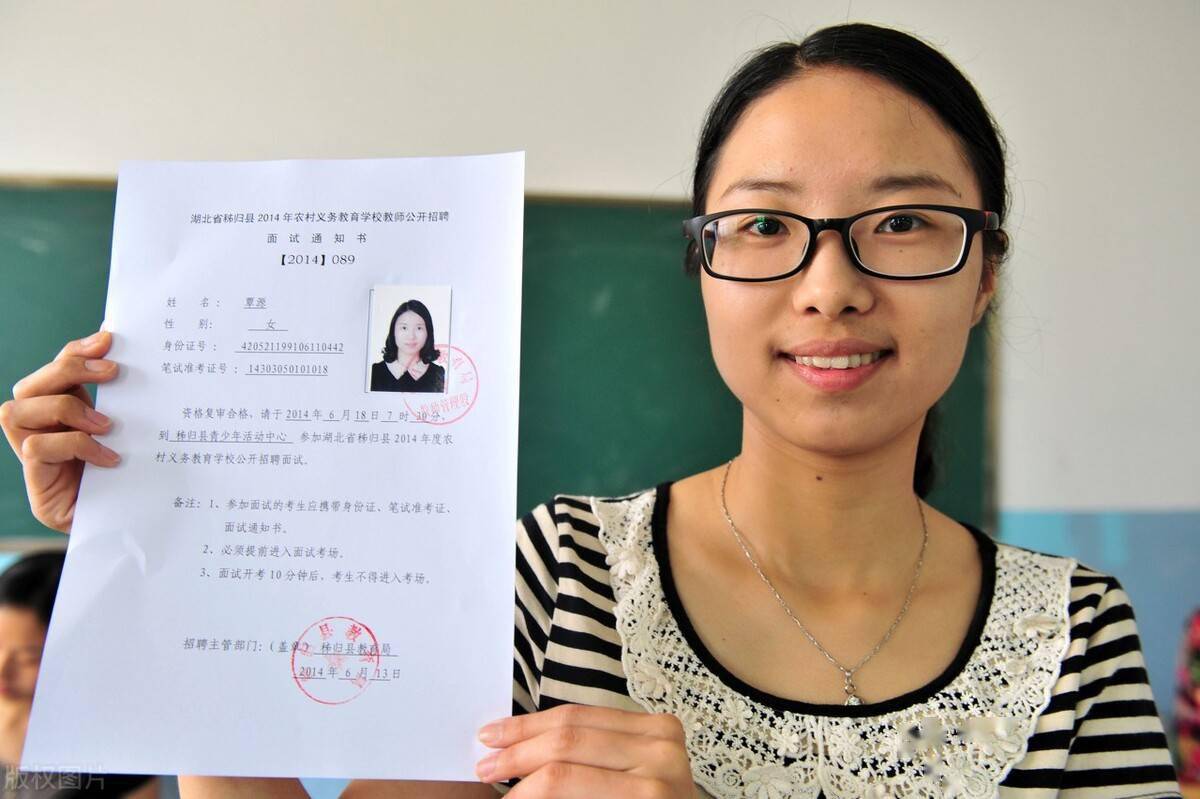 湖北省秭归县2014年农村义务教育学校教师公开招聘
面 试 通 知 书
【2014】089
姓 名： 覃源
性 别： 女
身份证号： 420521199106110442
笔试准考证号：14303050101018
资格复审合格，请于2014年 6 月18日 7 时 30 分，
到 秭归县青少年活动中心 参加湖北省秭归县2014年度农
村义务教育学校公开招聘面试。
备注：1、参加面试的考生应携带身份证、笔试准考证、
面试通知书。
2、必须提前进入面试考场。
3、面试开考10分钟后，考生不得进入考场。
招聘主管部门：（盖章） 秭归县教育局
2014年 6 月 13日
版权图片